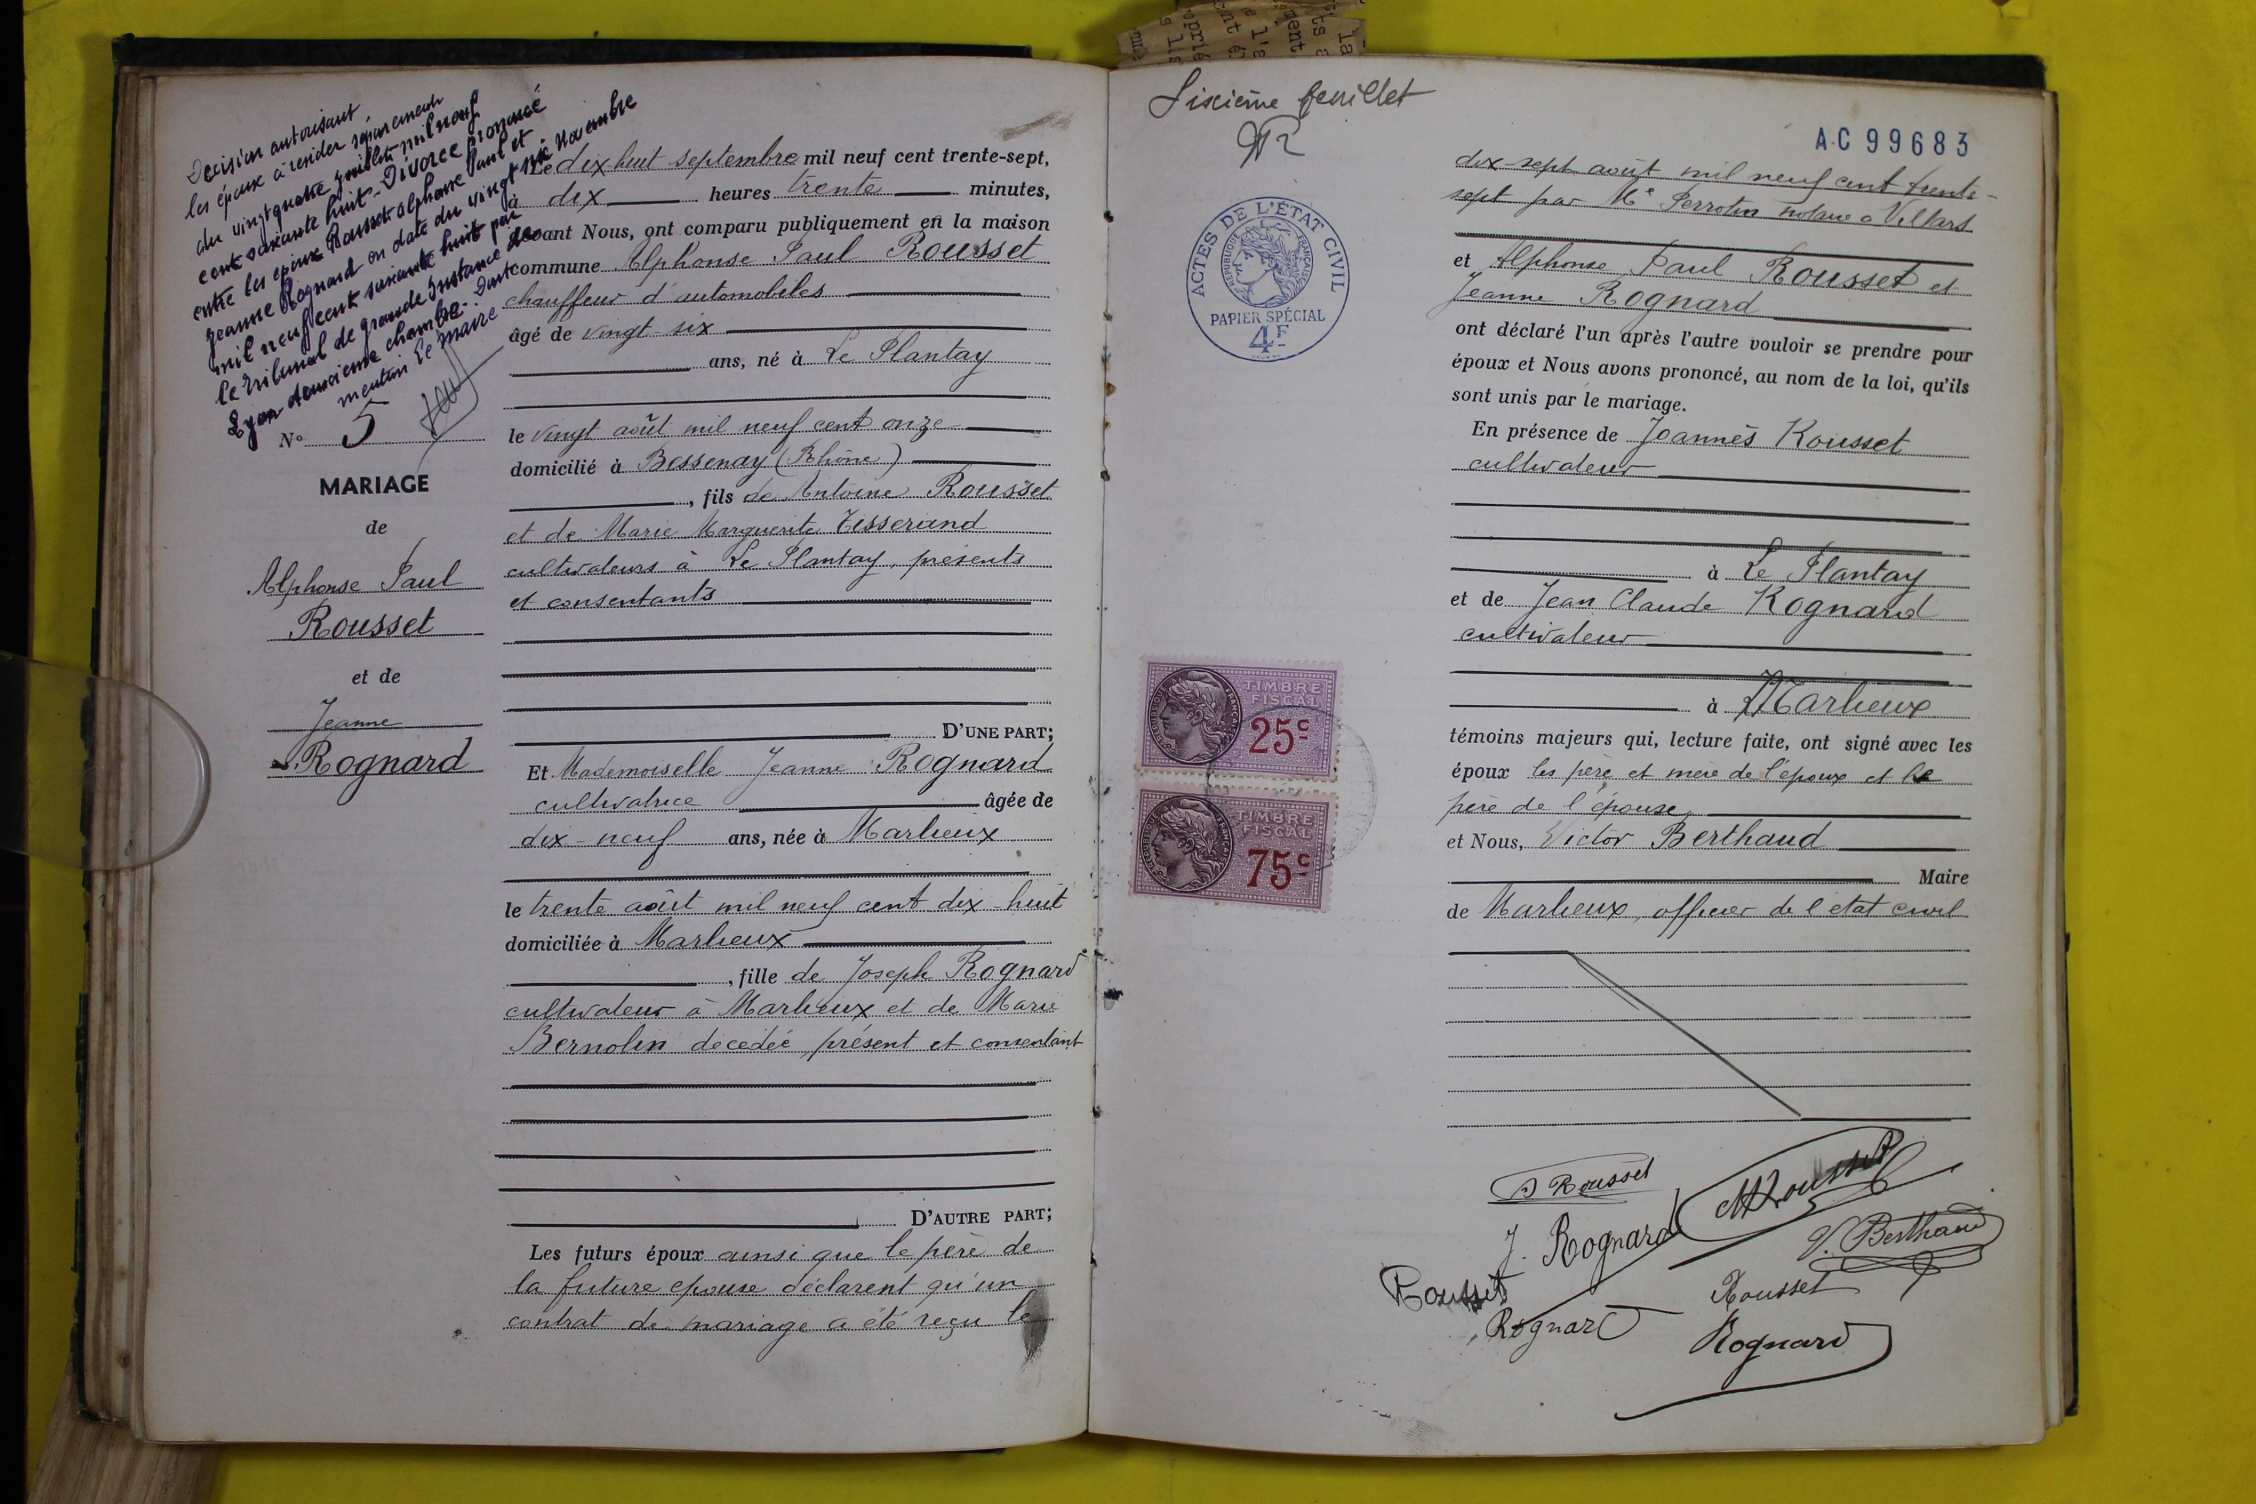 Décision autorisant
les épaux à résider séparément
du vingt quatre juillet mil neuf
cent soixante huit - Divorce prononcé
entre les époux Rousset Alphonse Paul et
Jeanne Rognard en date du vingt six Novembre
mil neuf cent soixante huit par
le Tribunal de grande Instance de
Lyon deuxième chambre. Dont
mention Le Maire
No 5
MARIAGE
de
Alphonse Paul
Rousset
et de
Jeanne
Rognard
Le dix huit septembre mil neuf cent trente-sept,
à dix heures trente minutes,
devant Nous, ont comparu publiquement en la maison
commune Alphonse Paul Rousset
chauffeur d'automobiles
âgé de vingt-six
ans, né à Le Plantay
le vingt août mil neuf cent onze
domicilié à Bessenay (Rhône)
, fils de Antoine Rousset
et de Marie Marguerite Tisserand
cultivateurs à Le Plantay, présents
et consentants
D'UNE PART;
Et Mademoiselle Jeanne Rognard
cultivatrice âgée de
dix-neuf ans, née à Marlieux
le trente août mil neuf cent dix-huit
domiciliée à Marlieux
, fille de Joseph Rognard
cultivateur à Marlieux et de Marie
Bernolin décédée, présent et consentant
D'AUTRE PART;
Les futurs époux ainsi que le père de
la future epouse déclarent qu'un
contrat de mariage a été reçu le
Sixième feuillet
AC 99683
ACTES DE L'ÉTAT CIVIL
RÉPUBLIQUE FRANÇAISE
PAPIER SPÉCIAL
4F
dix-sept août mil neuf cent trente-
sept par Me Perrotin notaire à Villars
et Alphonse Paul Rousset et
Jeanne Rognard
ont déclaré l'un après l'autre vouloir se prendre pour
époux et Nous avons prononcé, au nom de la loi, qu'ils
sont unis par le mariage.
En présence de Joannès Rousset
cultivateur
à Le Plantay
et de Jean Claude Rognard
cultivateur
à Marlieux
TIMBRE
FISCAL
25c
TIMBRE
FISCAL
75c
témoins majeurs qui, lecture faite, ont signé avec les
époux les père et mère de l'époux et le
père de l'épouse
et Nous, Victor Berthaud
Maire
de Marlieux, officier de l'état civil
A Rousset
M Rousset
J. Rognard
V. Berthaud
Rousset
Rousset
Rognard
Rognard